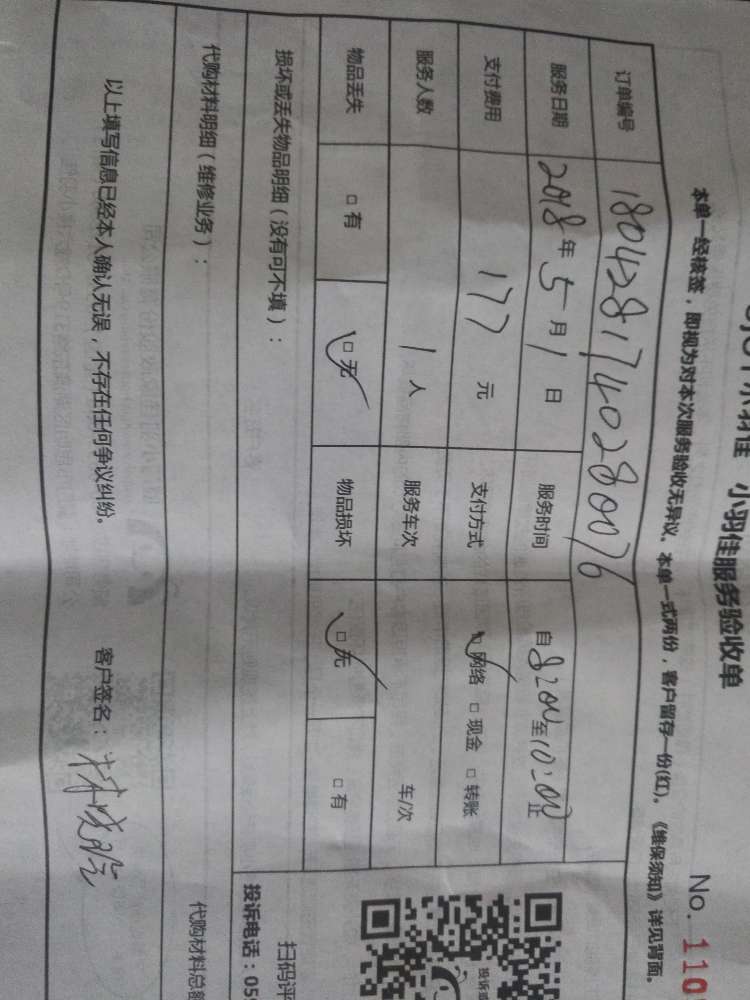 小羽佳 小羽佳服务验收单
No. 110
本单一经核签，即视为对本次服务验收无异议。本单一式两份，客户留存一份(红)。《维保须知》详见背面。
订单编号 1804281740280076
服务日期 2018年5月1日 服务时间 自8:00至10:00止
支付费用 177元 支付方式 ☑网络 □现金 □转账
服务人数 1人 服务车次 车/次
物品丢失 □有 ☑无 物品损坏 ☑无 □有
损坏或丢失物品明细（没有可不填）：
代购材料明细（维修业务）：
代购材料总
扫码评
投诉电话：059
以上填写信息已经本人确认无误，不存在任何争议纠纷。 客户签名：